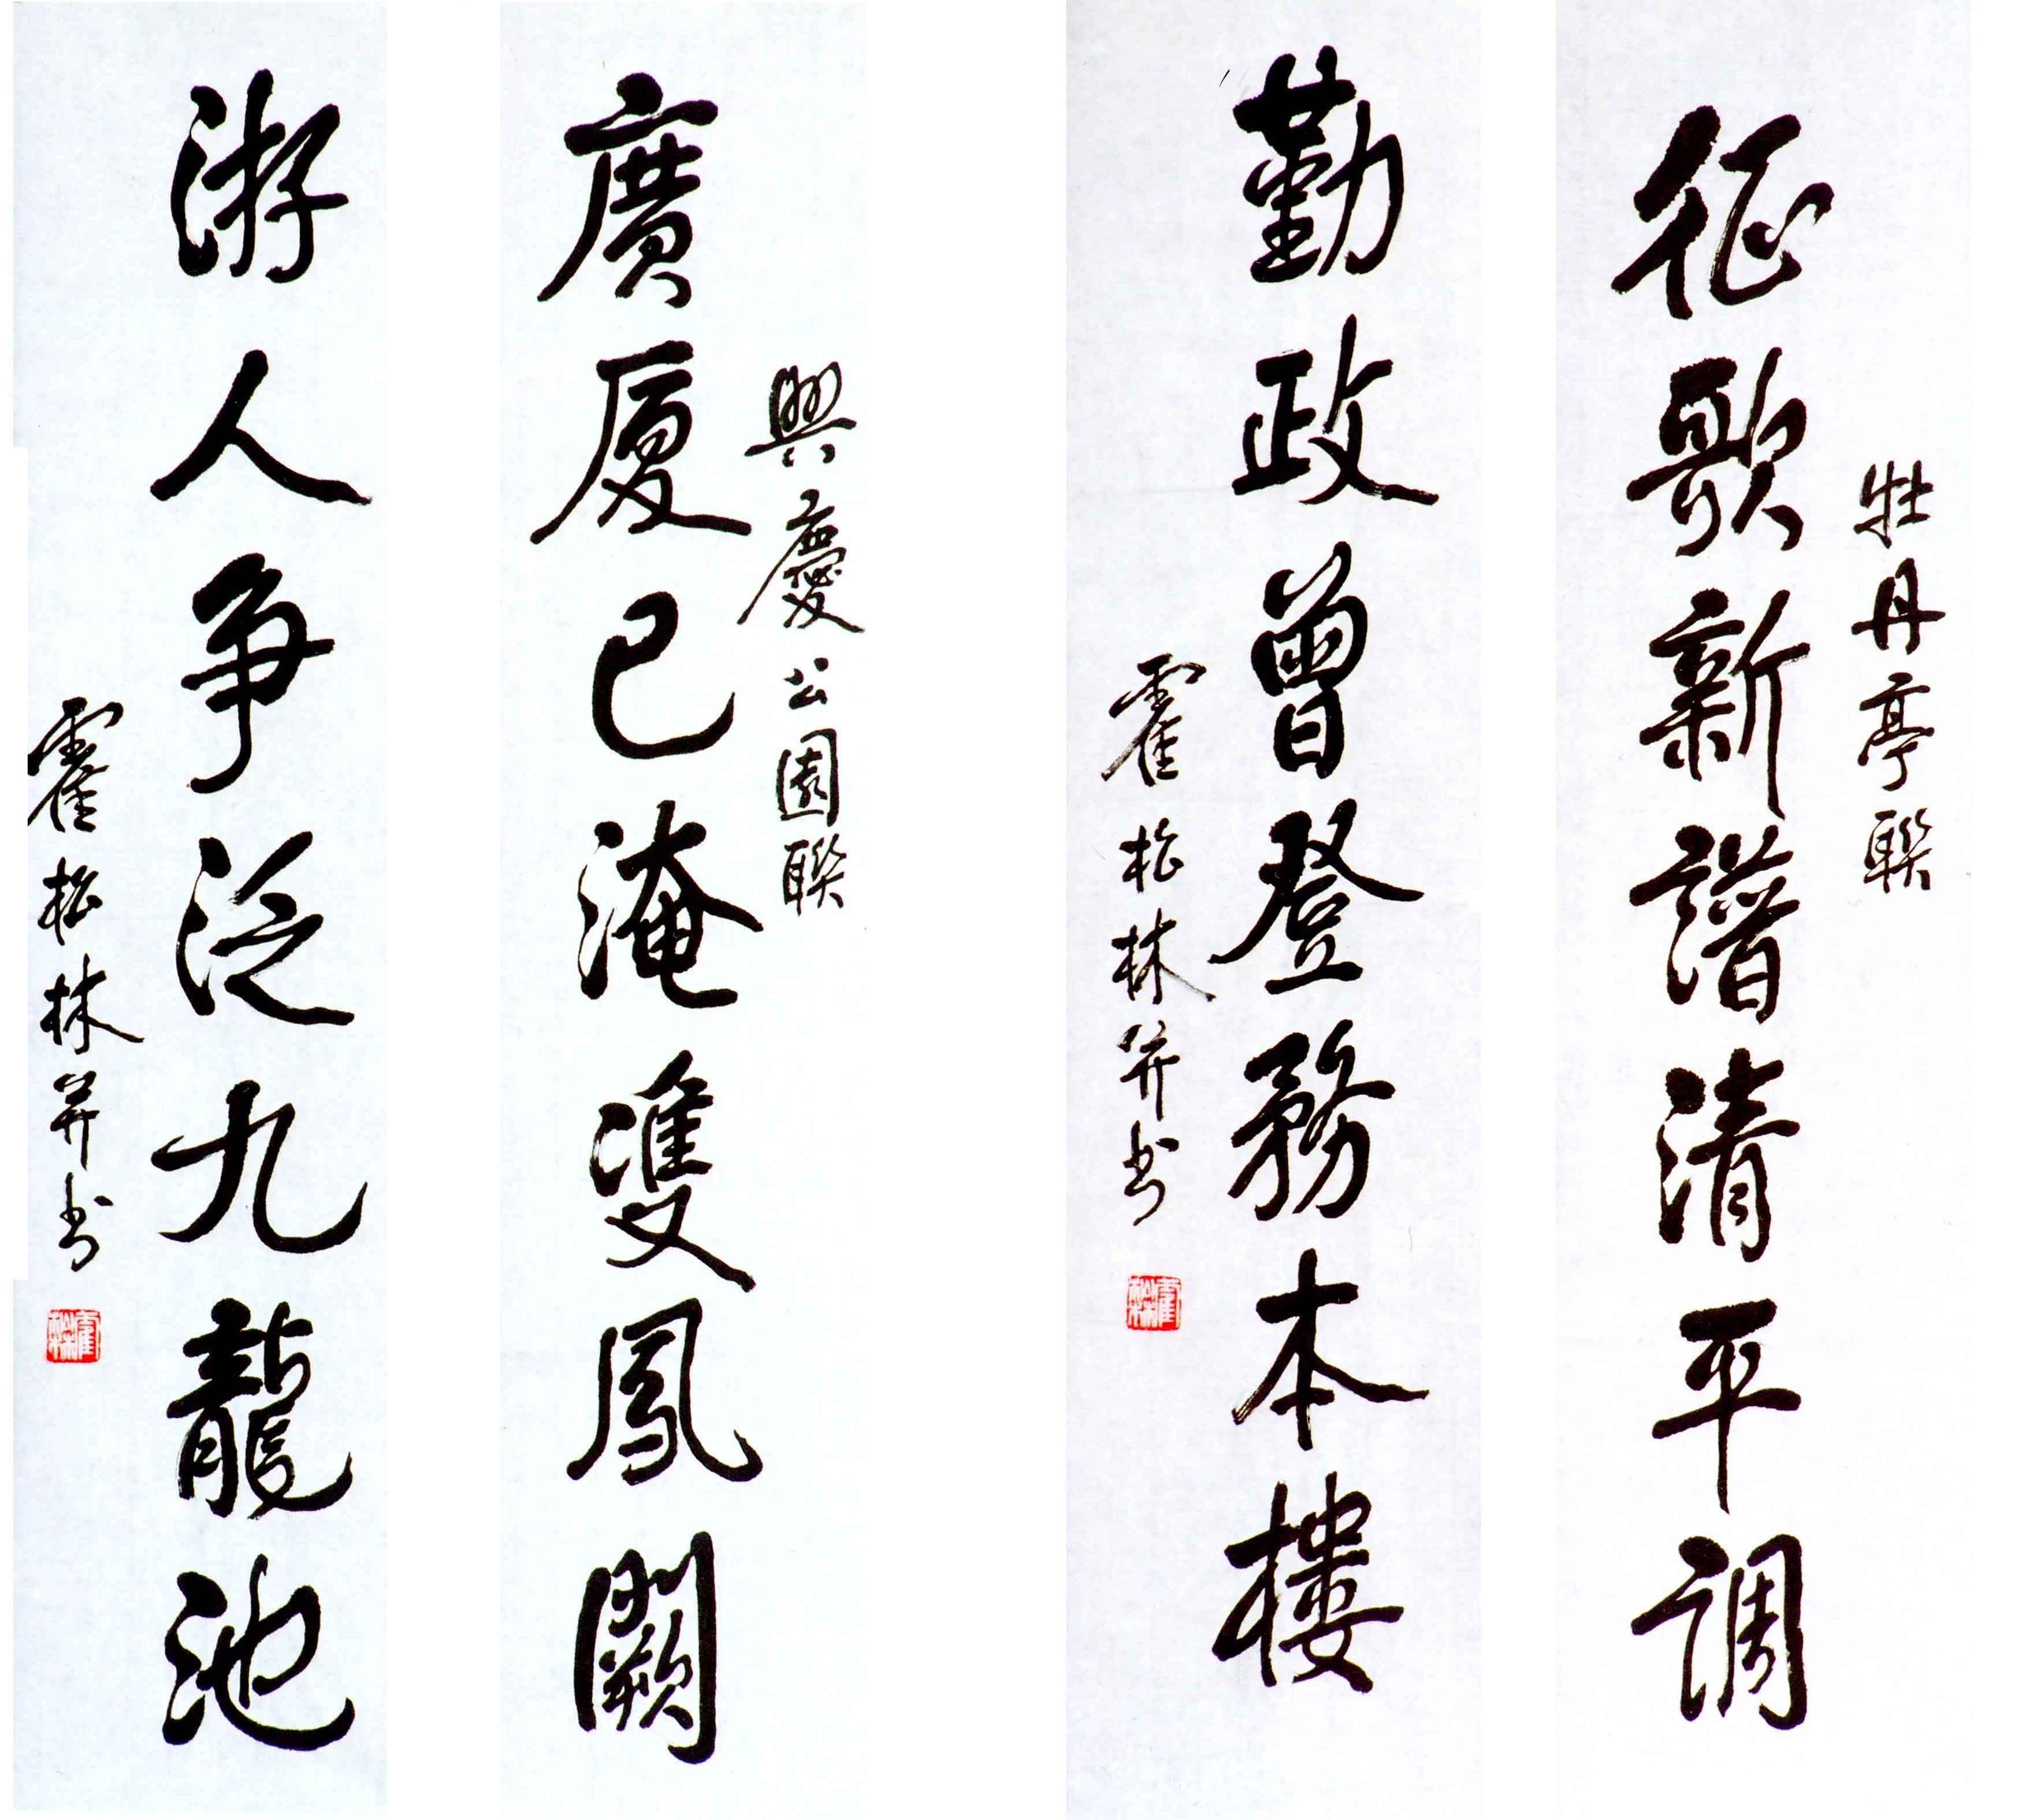 牡丹亭聯
征歌新譜清平調
勤政曾登務本樓
霍松林并书
興慶公園聯
廣厦已淹雙鳳闕
游人争泛九龍池
霍松林并书